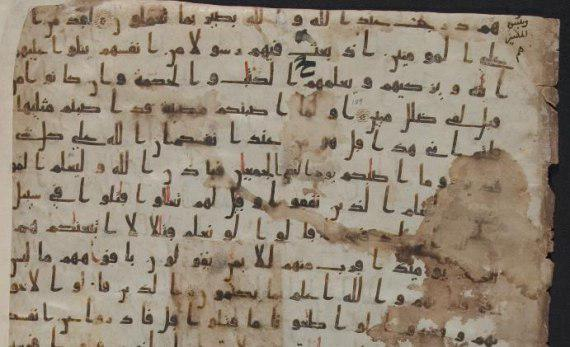 هم درجت عند الله و الله بصير بما يعملون لقد من ا
لله على المومنين اذ بعث فيهم رسولا من انفسهم يتلوا عليهم
ايته و يزكيهم و يعلمهم الكتب و الحكمة و ان كانوا من
قبل لفى ضلل مبين او لما اصبتكم مصيبة قد اصبتم مثليها
قلتم انى هذا قل هو من عند انفسكم ان الله على كل شى
قدير و ما اصبكم يوم التقى الجمعن فباذن الله و ليعلم المو
ليعلم الذين نفقوا و قيل لهم تعلوا قتلوا فى سبيل
قالوا لو نعلم قتلا لا تبعنكم هم
يومئذ اقرب منهم للايمن يقولون بافوههم ما ليس
قلوبهم و الله اعلم بما يكتمون الذين قالوا لاخو
نهم و قعدوا لو اطعونا ما قتلوا قل فادروا عن انفسكم